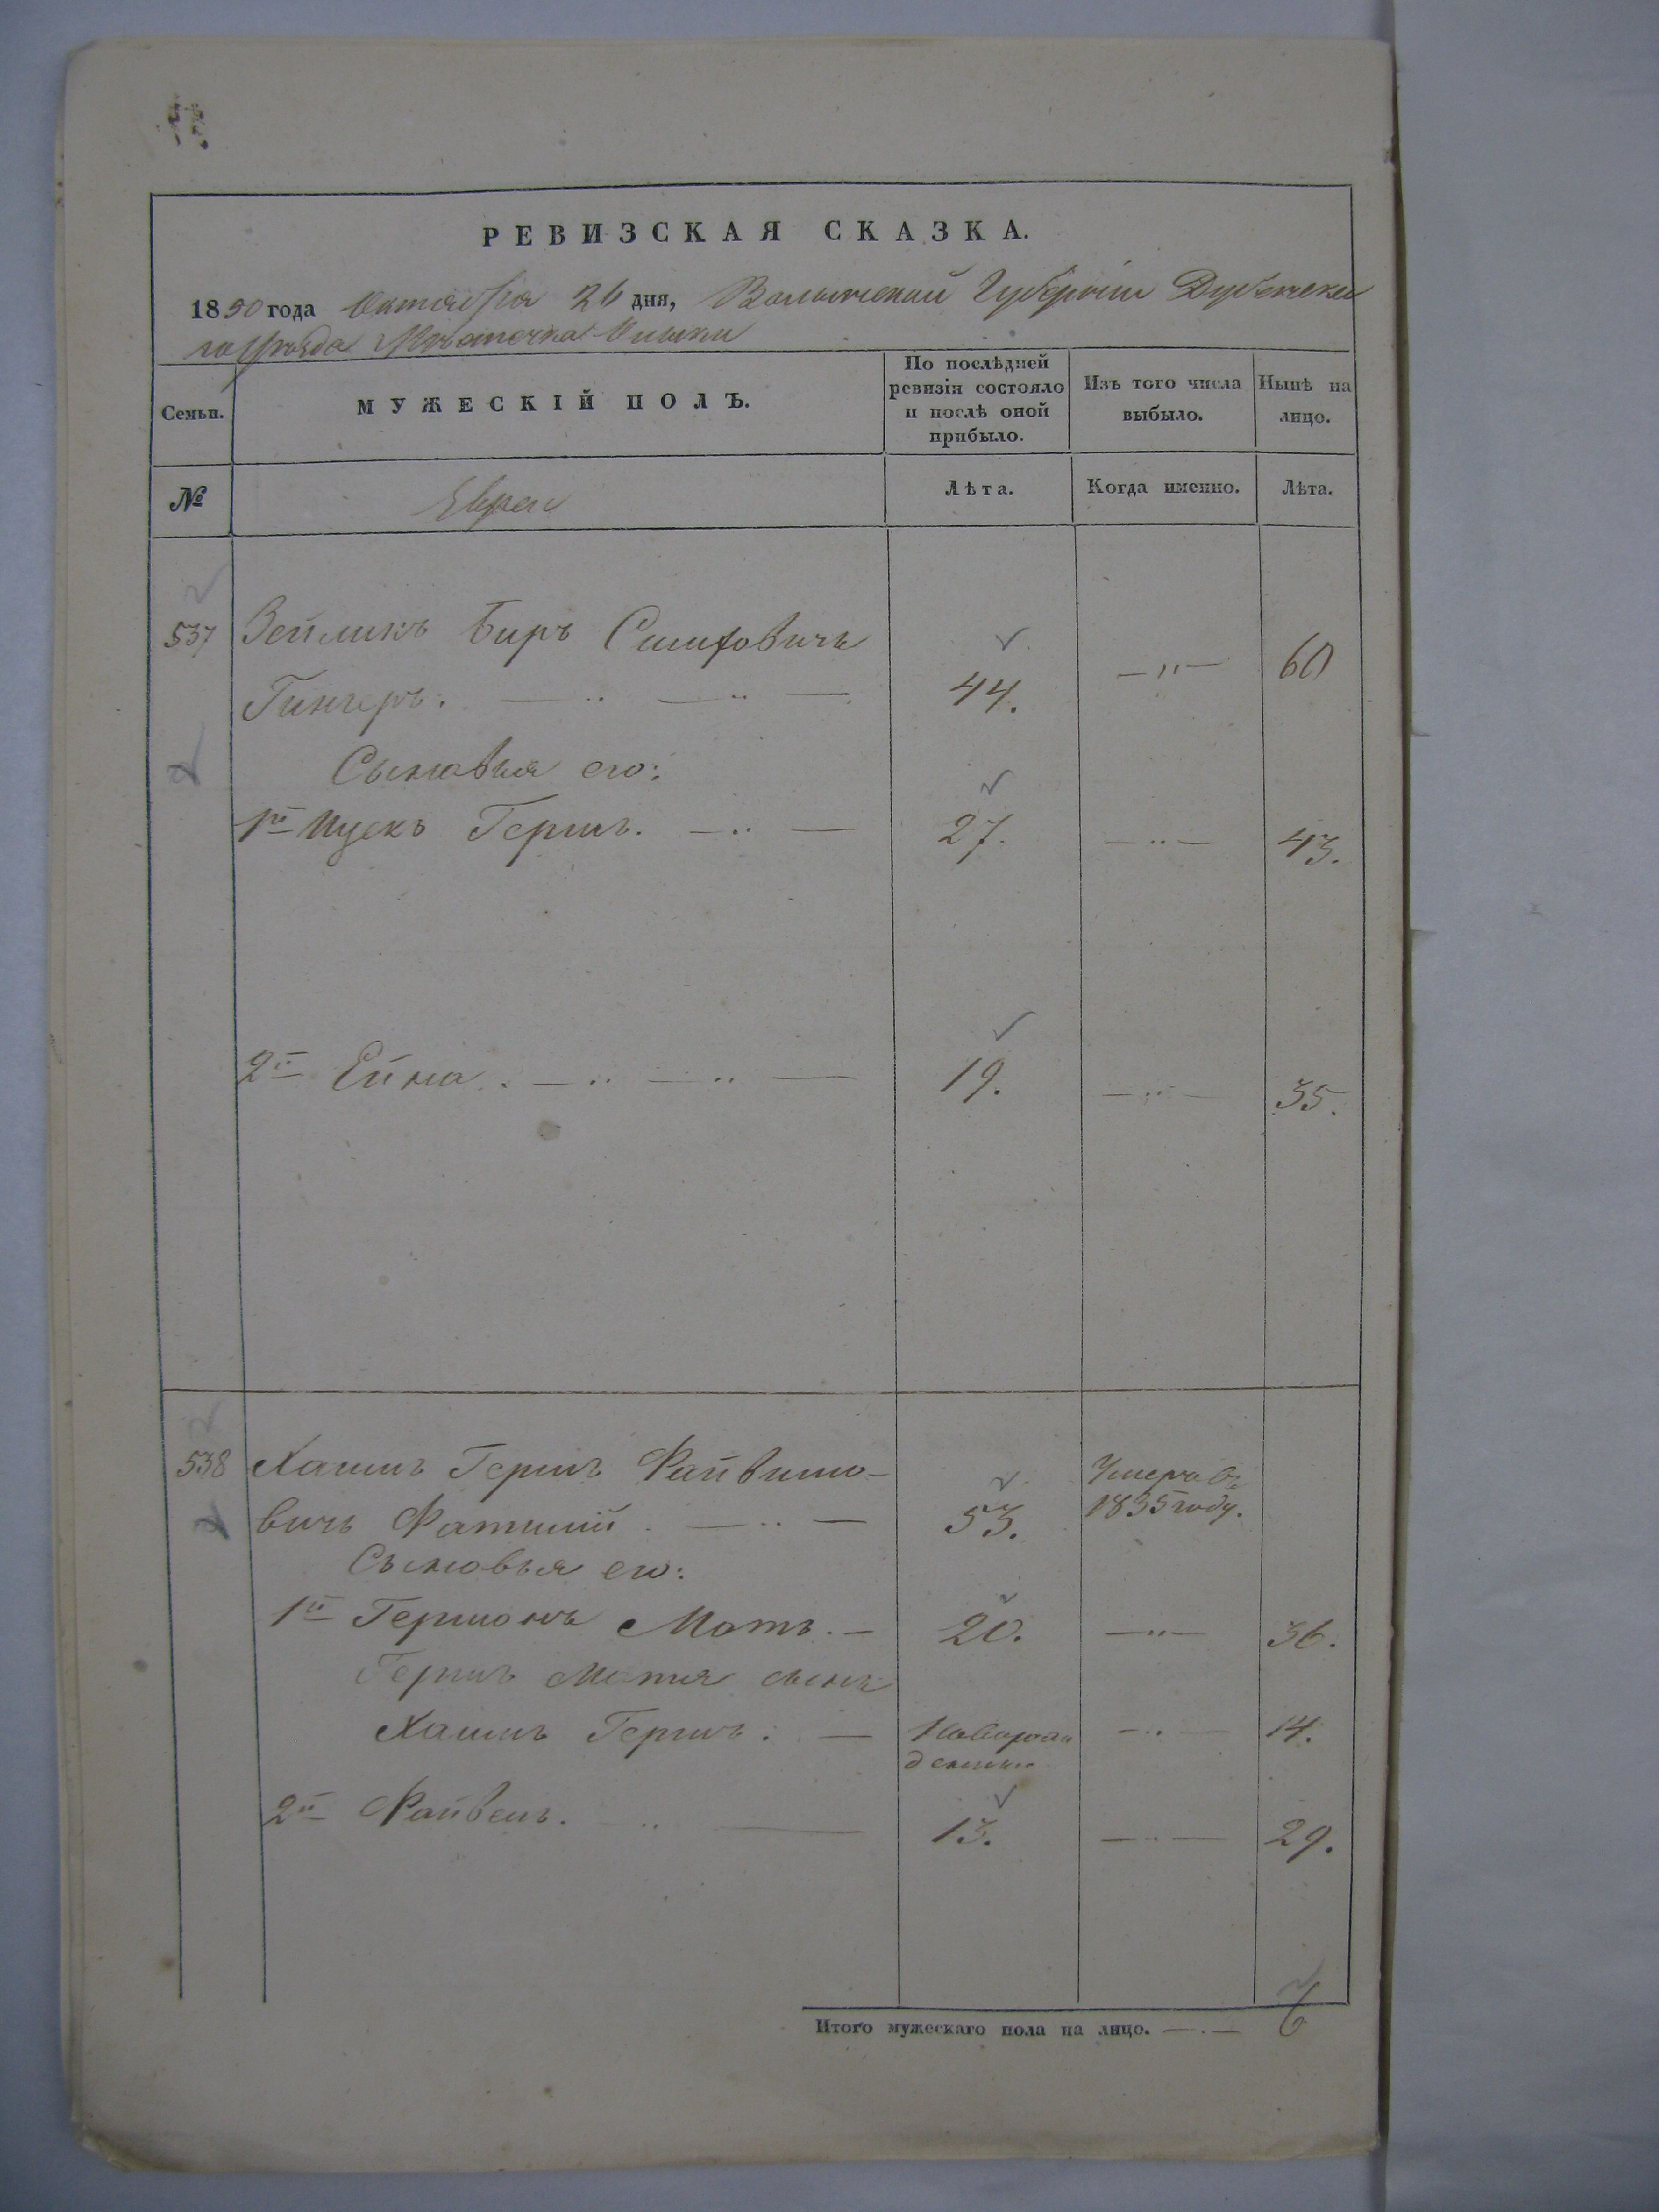 РЕВИЗСКАЯ СКАЗКА.
1850 года Октября 26 дня, Волынской Губернiи Дубенска
го уѣзда Мѣстечка
Семьи.
МУЖЕСКIЙ ПОЛЪ.
По послѣдней ревизiи состояло и послѣ оной прибыло.
Изъ того числа выбыло.
Нынѣ на лицо.
№
Евреи
Лѣта.
Когда именно.
Лѣта.
537 Зейликъ Биръ
Гингеръ. 44. 60
Сыновья его:
1й Ицекъ Гершъ. 27. 43.
2й Ейна. 19. 35.
538 Хаимъ Гершъ Файвишо-
вичъ 53. Умеръ въ 1835 году.
Сыновья его:
1й Мотъ. 20. 36.
сынъ
Хаимъ Гершъ. Новорож
денный 14.
2й Файвешъ. 13. 29.
Итого мужескаго пола на лицо. 6